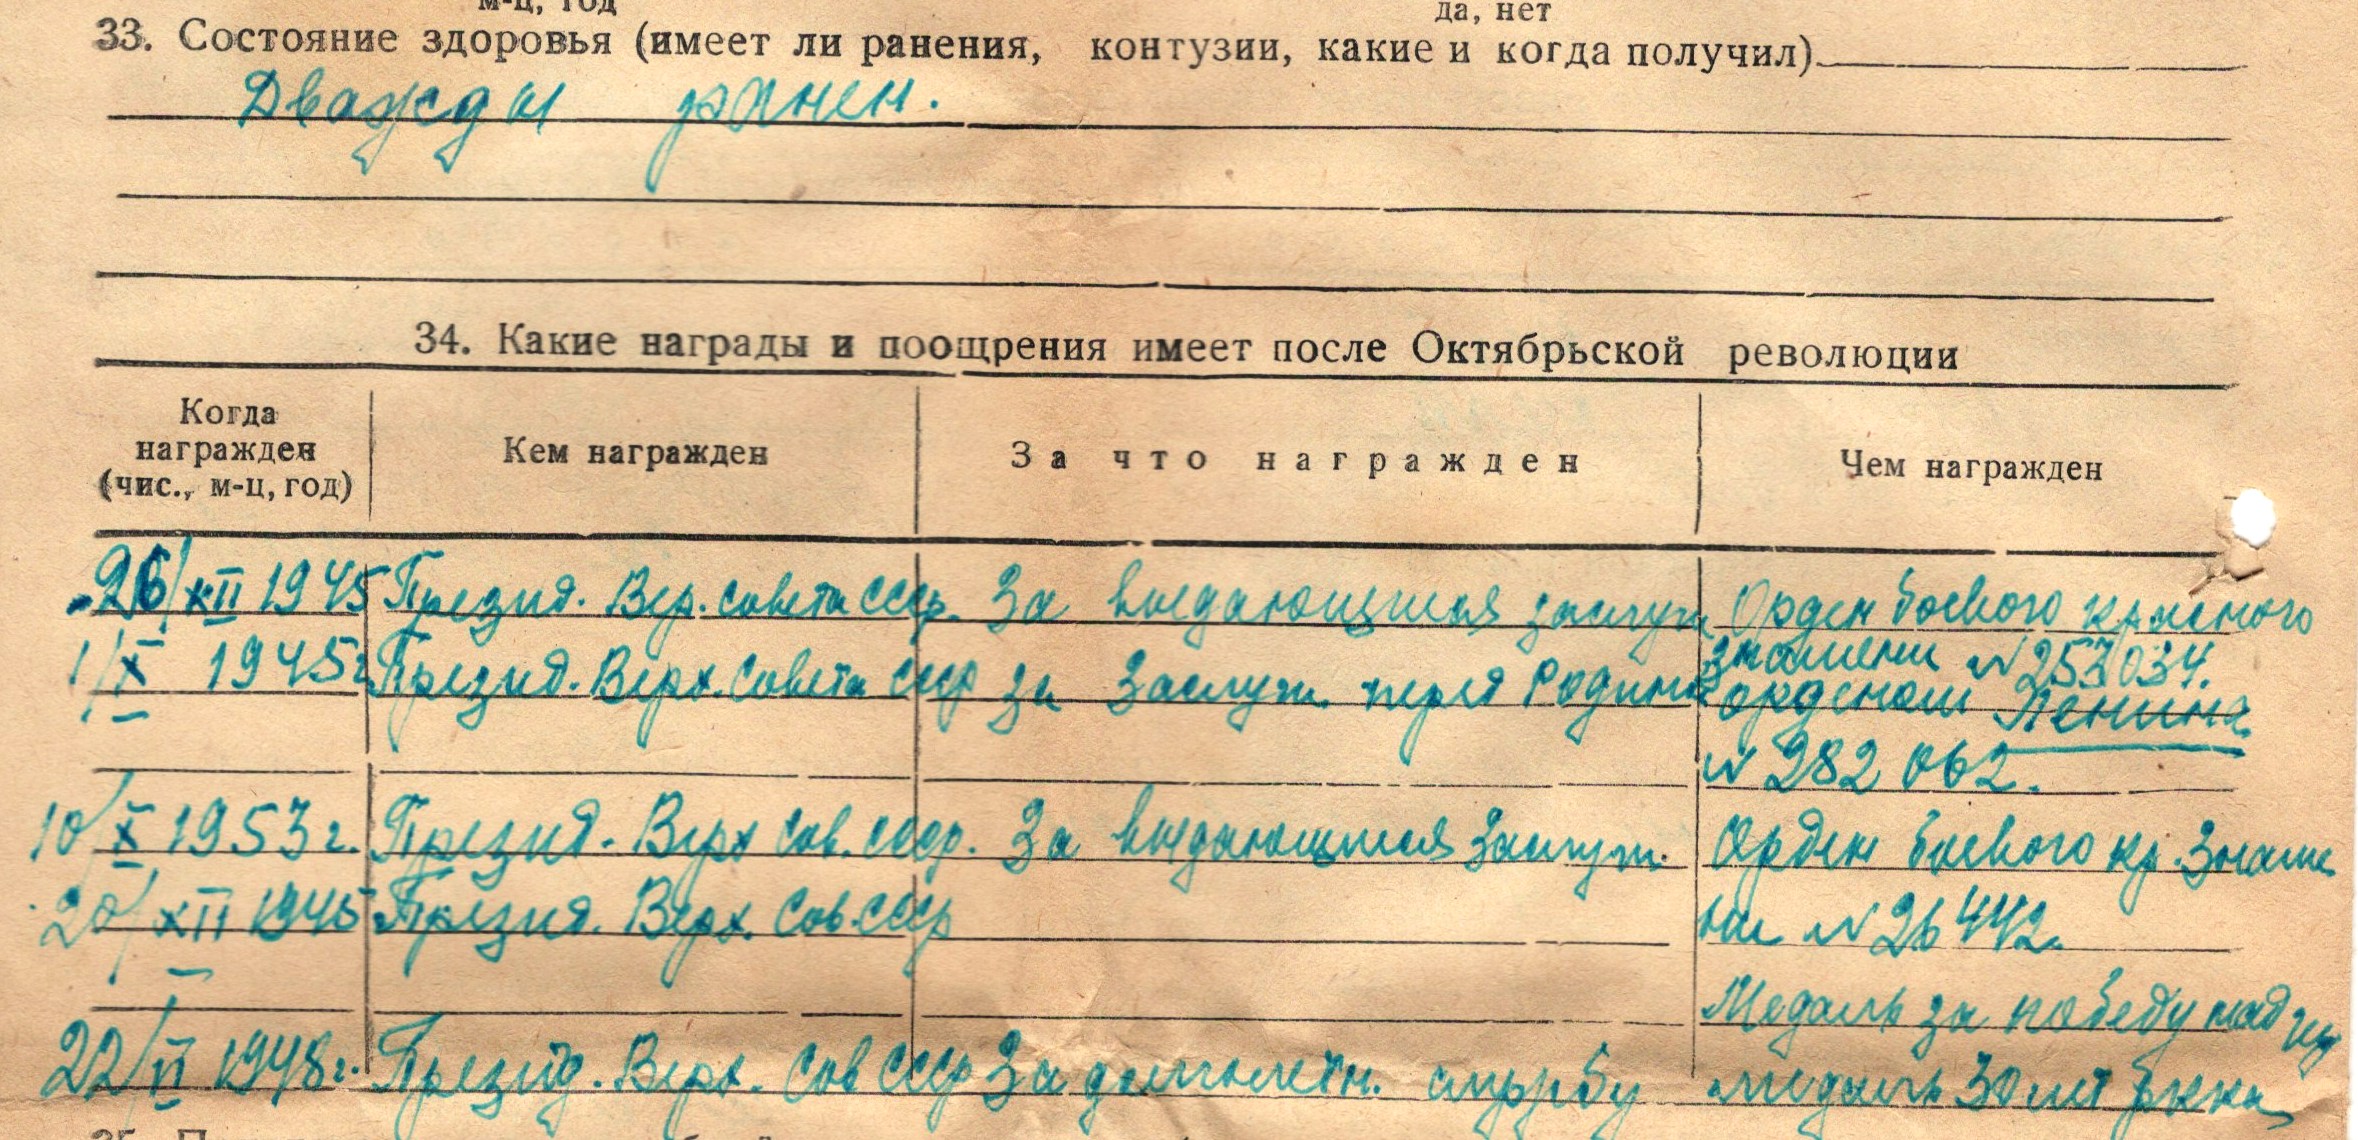 м-ц, год да, нет
33. Состояние здоровья (имеет ли ранения, контузии, какие и когда получил)
Дважды ранен.
34. Какие награды и поощрения имеет после Октябрьской революции
Когда награжден (чис., м-ц, год) Кем награжден За что награжден Чем награжден
26/XII 1945 Презид. Вер. совета СССР. За выдающиеся заслуги Орден боевого красного
знамени N 253034.
1/X 1945г Презид. Верх. Совета СССР за Заслуги перед Родиной орденом Ленина
N 282062.
10/X 1953г. Презид. Верх Сов. СССР. За выдающиеся заслуги. Орден боевого кр. Знаме
ни N 26442.
20/XII 1945 Презид. Верх. Сов. СССР
Медаль за победу над
22/II 1948г. Презид. Верх. Сов СССР За долголетн. службу медаль 30 лет